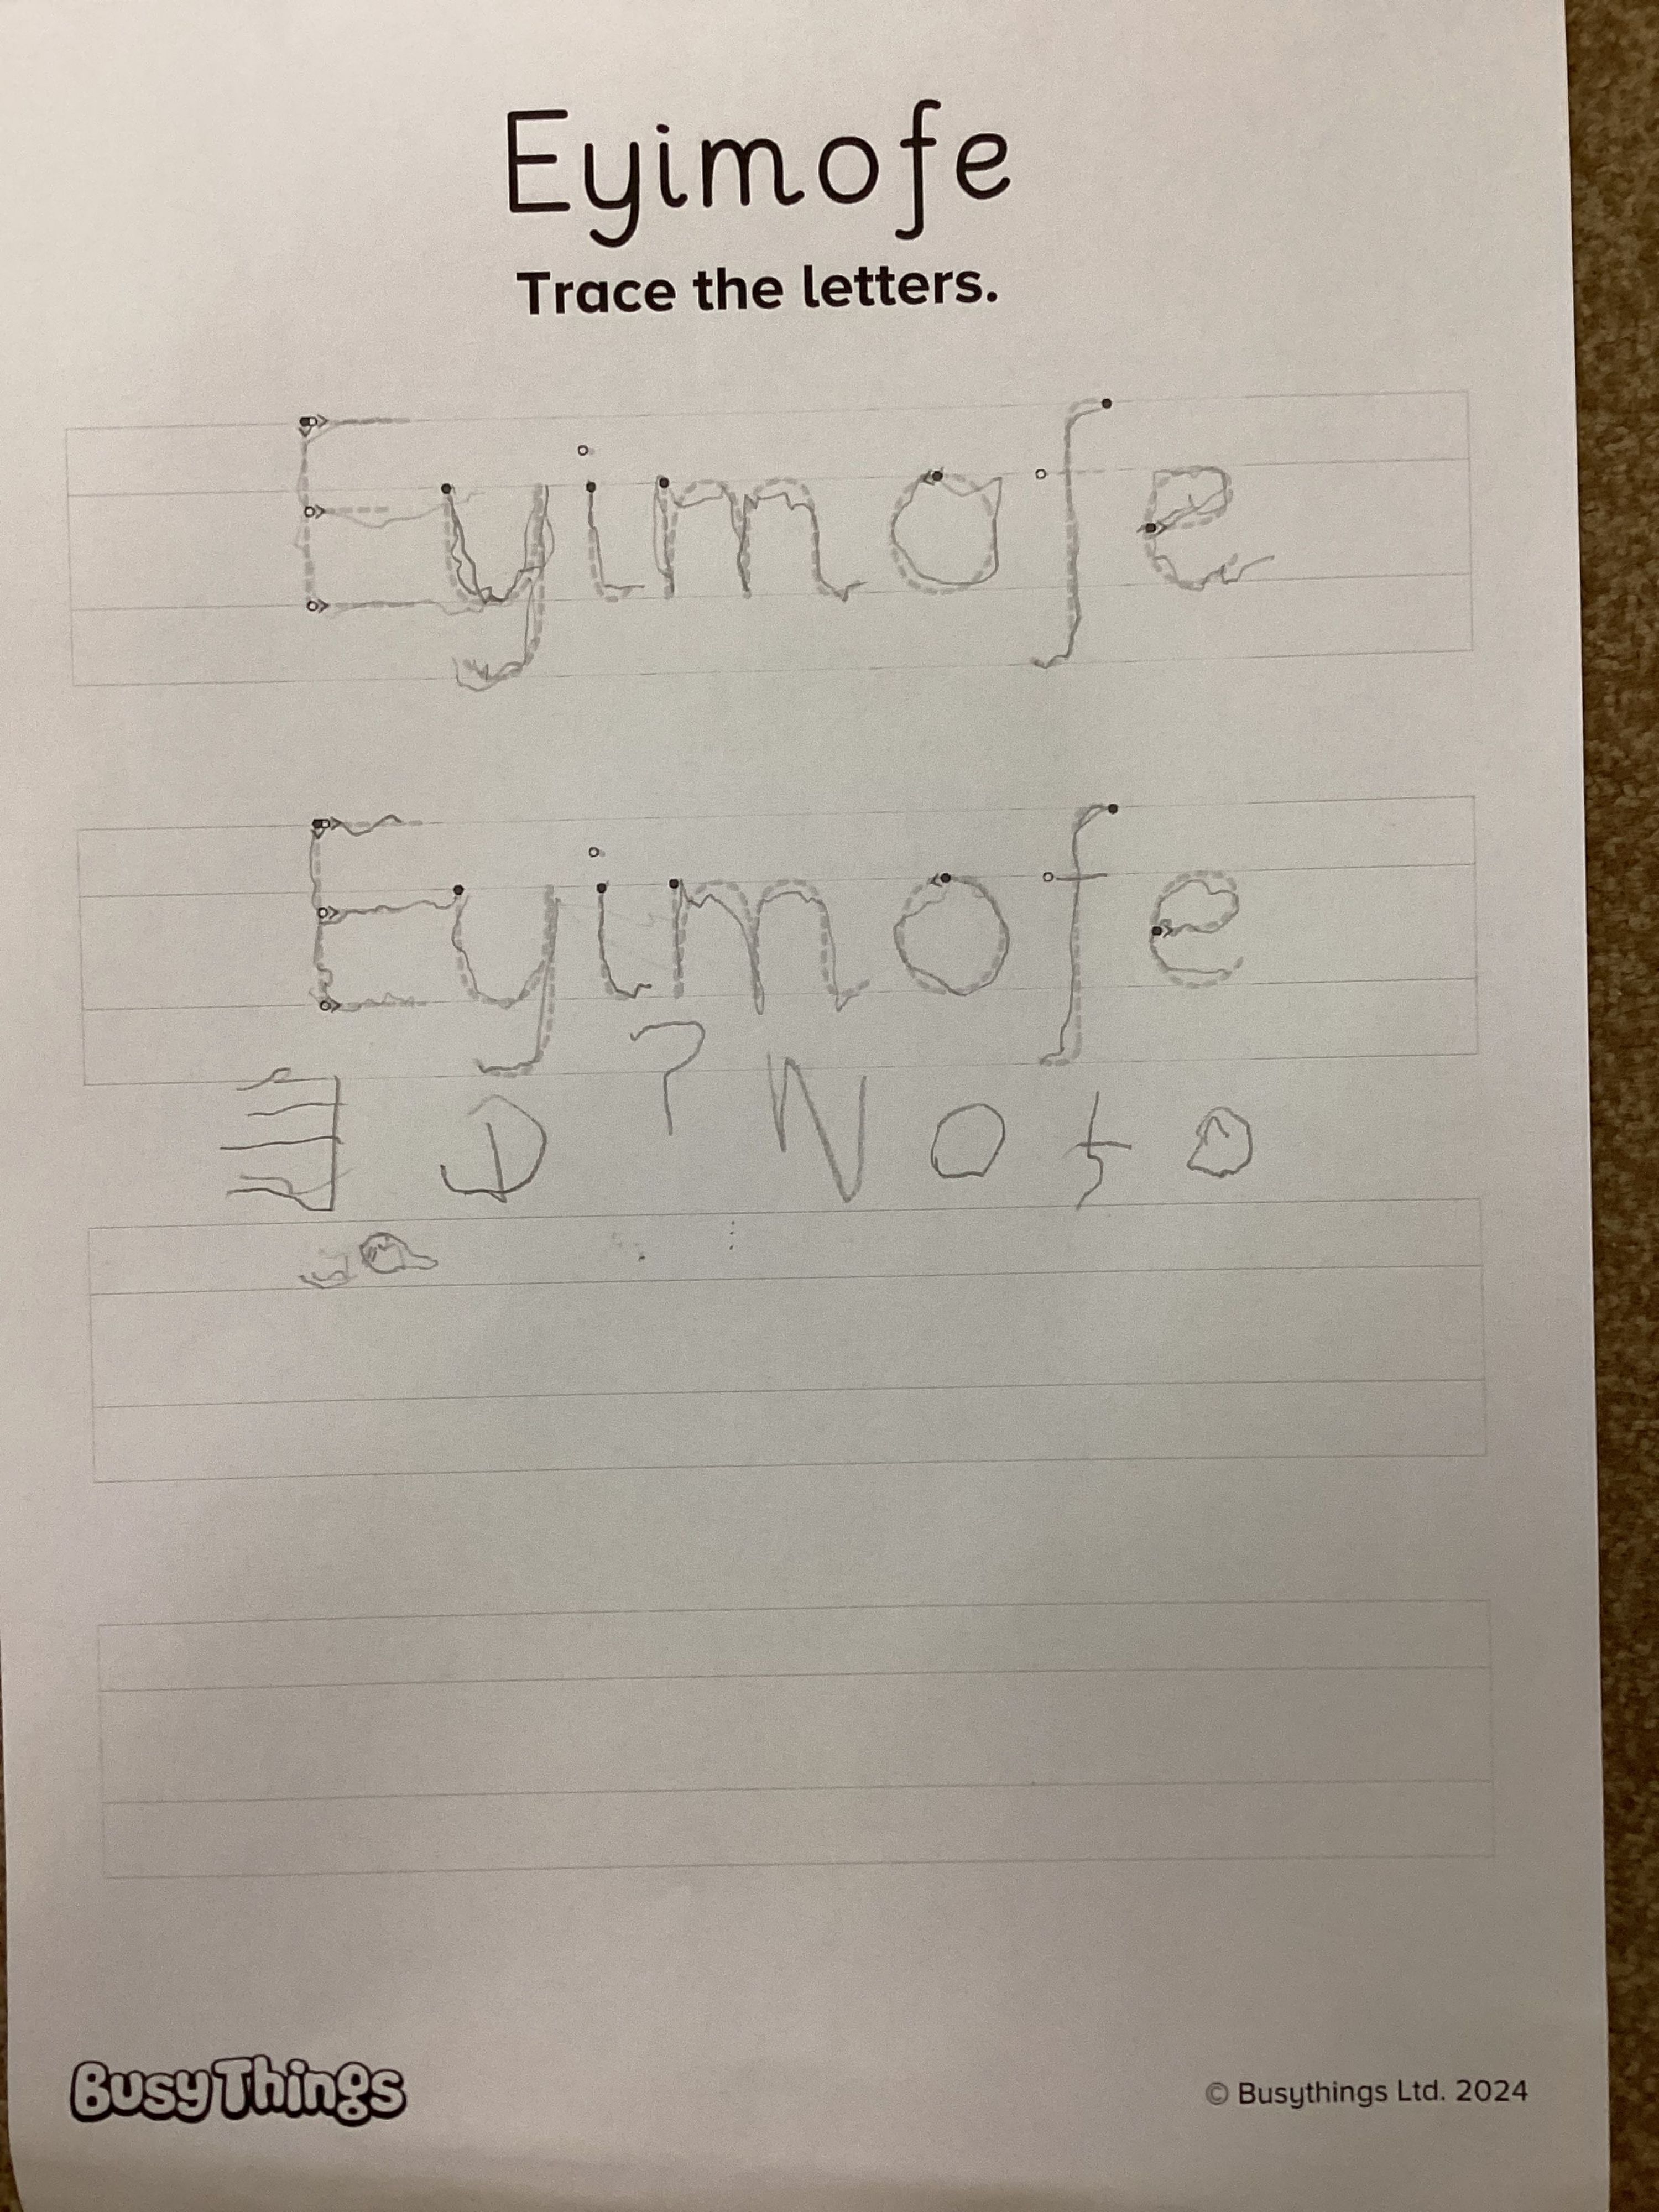 Eyimofe
Trace the letters.
Eyimofe
Eyimofe
E D ? N o f o
BusyThings
© Busythings Ltd. 2024